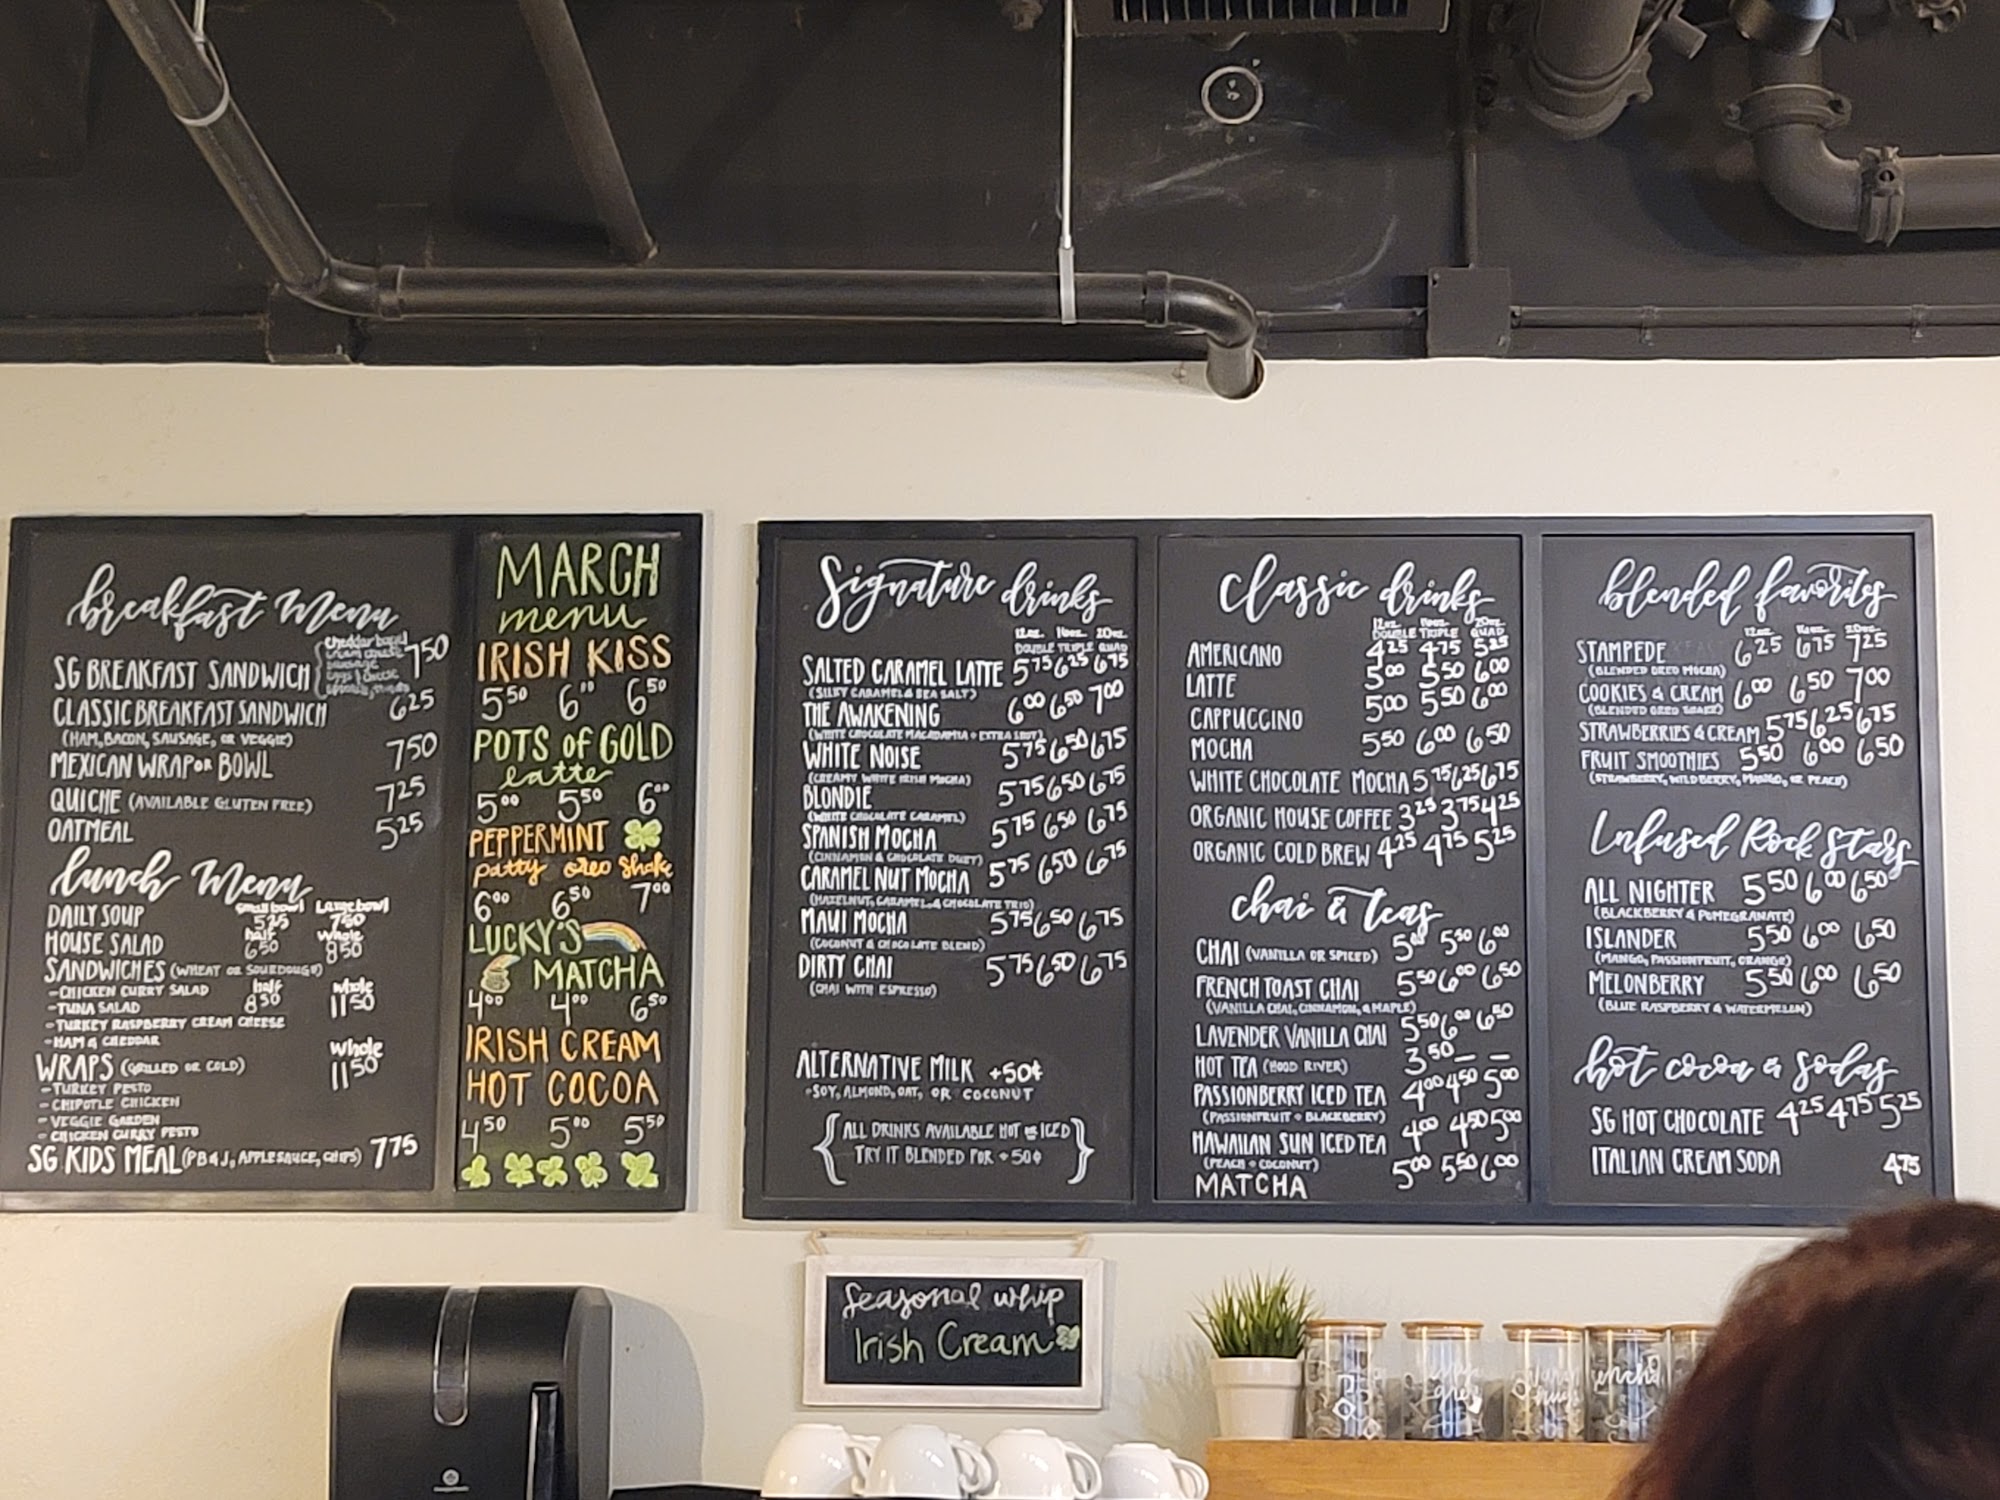 breakfast menu
SG BREAKFAST SANDWICH 7.50
CLASSIC BREAKFAST SANDWICH 6.25
(HAM, BACON, SAUSAGE, OR VEGGIE)
MEXICAN WRAP OR BOWL 7.50
QUICHE (AVAILABLE GLUTEN FREE) 7.25
OATMEAL 5.25
lunch menu
Small bowl Large bowl
DAILY SOUP 5.25 7.50
half whole
HOUSE SALAD 6.50 8.50
SANDWICHES (WHEAT OR SOURDOUGH)
half whole
-CHICKEN CURRY SALAD 8.50 11.50
-TUNA SALAD
-TURKEY RASPBERRY CREAM CHEESE
-HAM & CHEDDAR
whole
WRAPS (GRILLED OR COLD) 11.50
-TURKEY PESTO
-CHIPOTLE CHICKEN
-VEGGIE GARDEN
-CHICKEN CURRY PESTO
SG KIDS MEAL (PB & J, APPLESAUCE, CHIPS) 7.75
MARCH
menu
IRISH KISS
5.50 6.00 6.50
POTS of GOLD
latte
5.00 5.50 6.00
PEPPERMINT
patty oreo shake
6.00 6.50 7.00
LUCKY'S
MATCHA
4.00 4.00 6.50
IRISH CREAM
HOT COCOA
4.50 5.00 5.50
Signature drinks
12oz. 16oz. 20oz.
DOUBLE TRIPLE QUAD
SALTED CARAMEL LATTE 5.75 6.25 6.75
(SILKY CARAMEL & SEA SALT)
THE AWAKENING 6.00 6.50 7.00
(WHITE CHOCOLATE MACADAMIA + EXTRA SHOT)
WHITE NOISE 5.75 6.50 6.75
(CREAMY WHITE IRISH MOCHA)
BLONDIE 5.75 6.50 6.75
(WHITE CHOCOLATE CARAMEL)
SPANISH MOCHA 5.75 6.50 6.75
(CINNAMON & CHOCOLATE DUET)
CARAMEL NUT MOCHA 5.75 6.50 6.75
(HAZELNUT, CARAMEL, & CHOCOLATE TRIO)
MAUI MOCHA 5.75 6.50 6.75
(COCONUT & CHOCOLATE BLEND)
DIRTY CHAI 5.75 6.50 6.75
(CHAI WITH ESPRESSO)
ALTERNATIVE MILK +50¢
-SOY, ALMOND, OAT, OR COCONUT
ALL DRINKS AVAILABLE HOT OR ICED
TRY IT BLENDED FOR +50¢
Classic drinks
12oz. 16oz. 20oz.
DOUBLE TRIPLE QUAD
AMERICANO 4.25 4.75 5.25
LATTE 5.00 5.50 6.00
CAPPUCCINO 5.00 5.50 6.00
MOCHA 5.50 6.00 6.50
WHITE CHOCOLATE MOCHA 5.75 6.25 6.75
ORGANIC HOUSE COFFEE 3.25 3.75 4.25
ORGANIC COLD BREW 4.25 4.75 5.25
chai & teas
CHAI (VANILLA OR SPICED) 5.00 5.50 6.00
FRENCH TOAST CHAI 5.50 6.00 6.50
(VANILLA CHAI, CINNAMON, & MAPLE)
LAVENDER VANILLA CHAI 5.50 6.00 6.50
HOT TEA (HOOD RIVER) 3.50 — —
PASSIONBERRY ICED TEA 4.00 4.50 5.00
(PASSIONFRUIT + BLACKBERRY)
HAWAIIAN SUN ICED TEA 4.00 4.50 5.00
(PEACH + COCONUT)
MATCHA 5.00 5.50 6.00
blended favorites
12oz. 16oz. 20oz.
STAMPEDE 6.25 6.75 7.25
(BLENDED OREO MOCHA)
COOKIES & CREAM 6.00 6.50 7.00
(BLENDED OREO SHAKE)
STRAWBERRIES & CREAM 5.75 6.25 6.75
FRUIT SMOOTHIES 5.50 6.00 6.50
(STRAWBERRY, WILDBERRY, MANGO, OR PEACH)
Infused Rock Stars
ALL NIGHTER 5.50 6.00 6.50
(BLACKBERRY & POMEGRANATE)
ISLANDER 5.50 6.00 6.50
(MANGO, PASSIONFRUIT, ORANGE)
MELONBERRY 5.50 6.00 6.50
(BLUE RASPBERRY & WATERMELON)
hot cocoa & sodas
SG HOT CHOCOLATE 4.25 4.75 5.25
ITALIAN CREAM SODA 4.75
Seasonal whip
Irish Cream